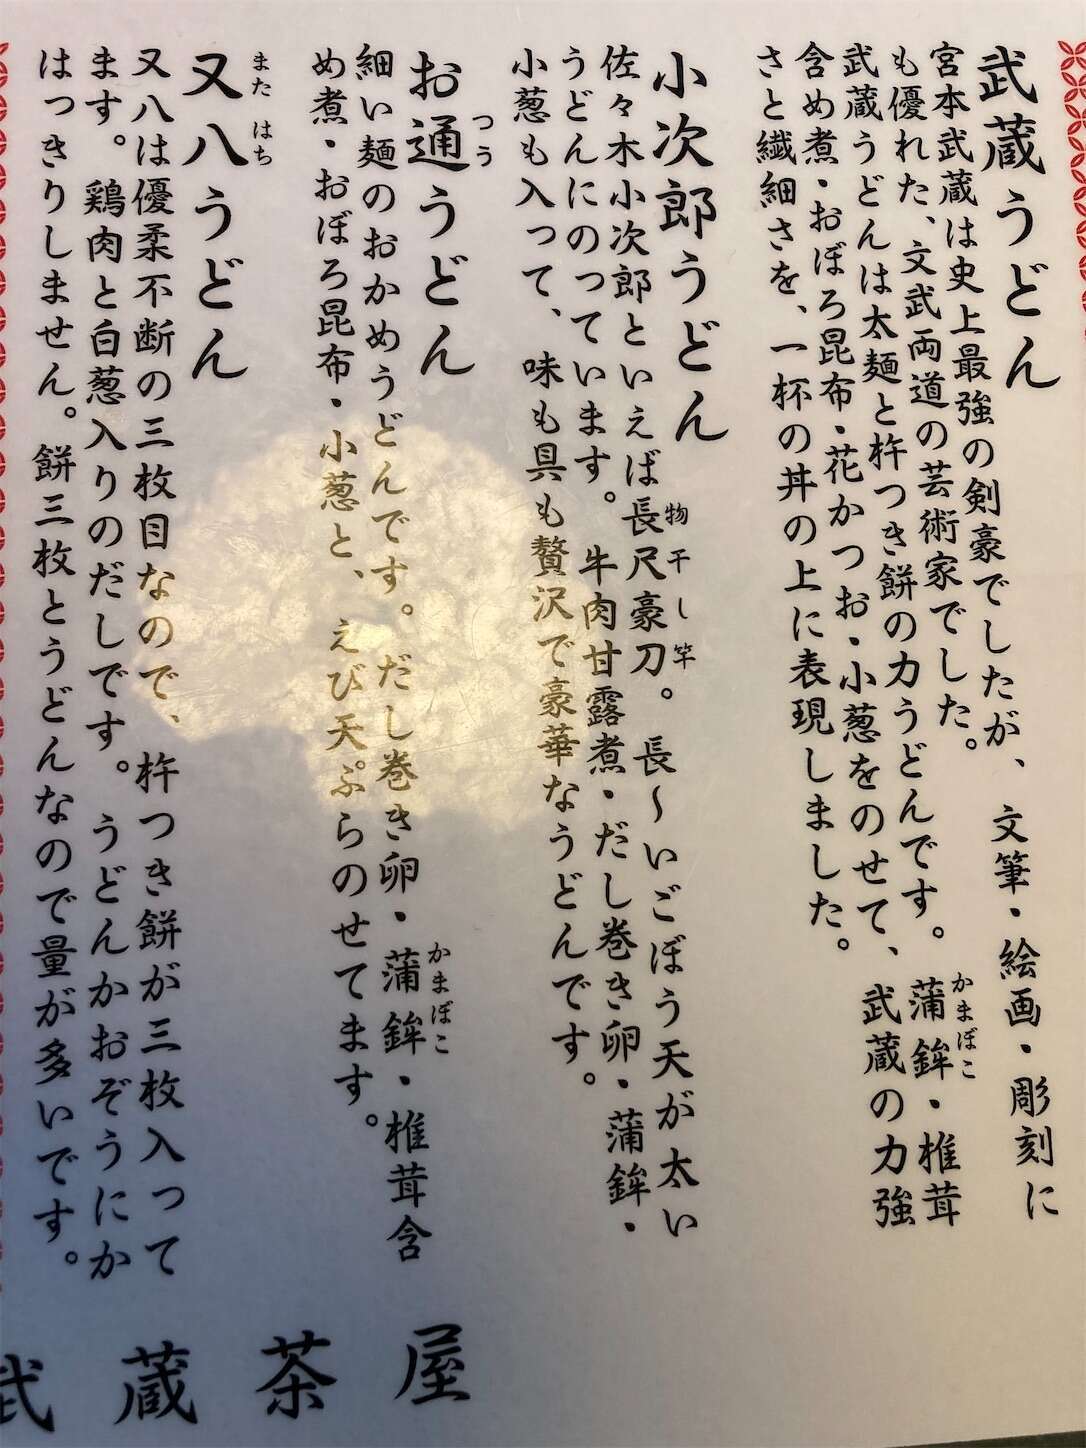 武蔵うどん
宮本武蔵は史上最強の剣豪でしたが、文筆・絵画・彫刻に
も優れた、文武両道の芸術家でした。
武蔵うどんは太麺と杵つき餅の力うどんです。蒲鉾・椎茸
かまぼこ
含め煮・おぼろ昆布・花かつお・小葱をのせて、武蔵の力強
さと繊細さを、一杯の丼の上に表現しました。
小次郎うどん
佐々木小次郎といえば長尺豪刀。長〜いごぼう天が太い
物干し竿
うどんにのっています。牛肉甘露煮・だし巻き卵・蒲鉾・
小葱も入って、味も具も贅沢で豪華なうどんです。
お通うどん
つう
細い麺のおかめうどんです。だし巻き卵・蒲鉾・椎茸含
かまぼこ
め煮・おぼろ昆布・小葱と、えび天ぷらのせてます。
又八うどん
また はち
又八は優柔不断の三枚目なので、杵つき餅が三枚入って
ます。鶏肉と白葱入りのだしです。うどんかおぞうにか
はっきりしません。餅三枚とうどんなので量が多いです。
武蔵茶屋